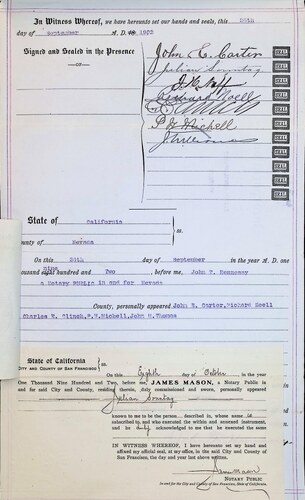 In Witness Whereof, we have hereunto set our hands and seals, this
day of September A. D. 1902
Signed and Sealed in the Presence
—OF—
John E. Carter
Julian Sonntag
Richard Noell
P. G. Michell
SEAL
SEAL
SEAL
SEAL
SEAL
SEAL
SEAL
SEAL
State of California
County of Nevada
ss.
On this day of September in the year A. D. one
thousand nine hundred and Two, before me, John T. Hennessy
a Notary PUBLIC in and for Nevada
County, personally appeared John E. Carter, Richard Noell
Charles E.
State of California
CITY AND COUNTY OF SAN FRANCISCO
ss.
On this Eighth day of October, in the year
One Thousand Nine Hundred and Two, before me, JAMES MASON, a Notary Public in
and for said City and County, residing therein, duly commissioned and sworn, personally appeared
Julian Sonntag
known to me to be the person described in, whose name is
subscribed to, and who executed the within and annexed instrument, and
he duly acknowledged to me that he executed the same
IN WITNESS WHEREOF, I have hereunto set my hand and
affixed my official seal, at my office, in the said City and County of
San Francisco, the day and year last above written.
James Mason
NOTARY PUBLIC
In and for the City and County of San Francisco, State of California.